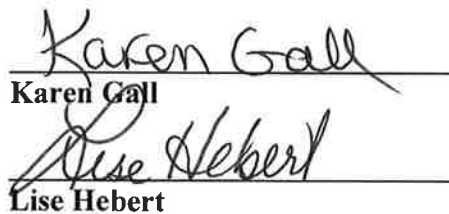 Karen Gall
Karen Gall
Lise Hebert
Lise Hebert